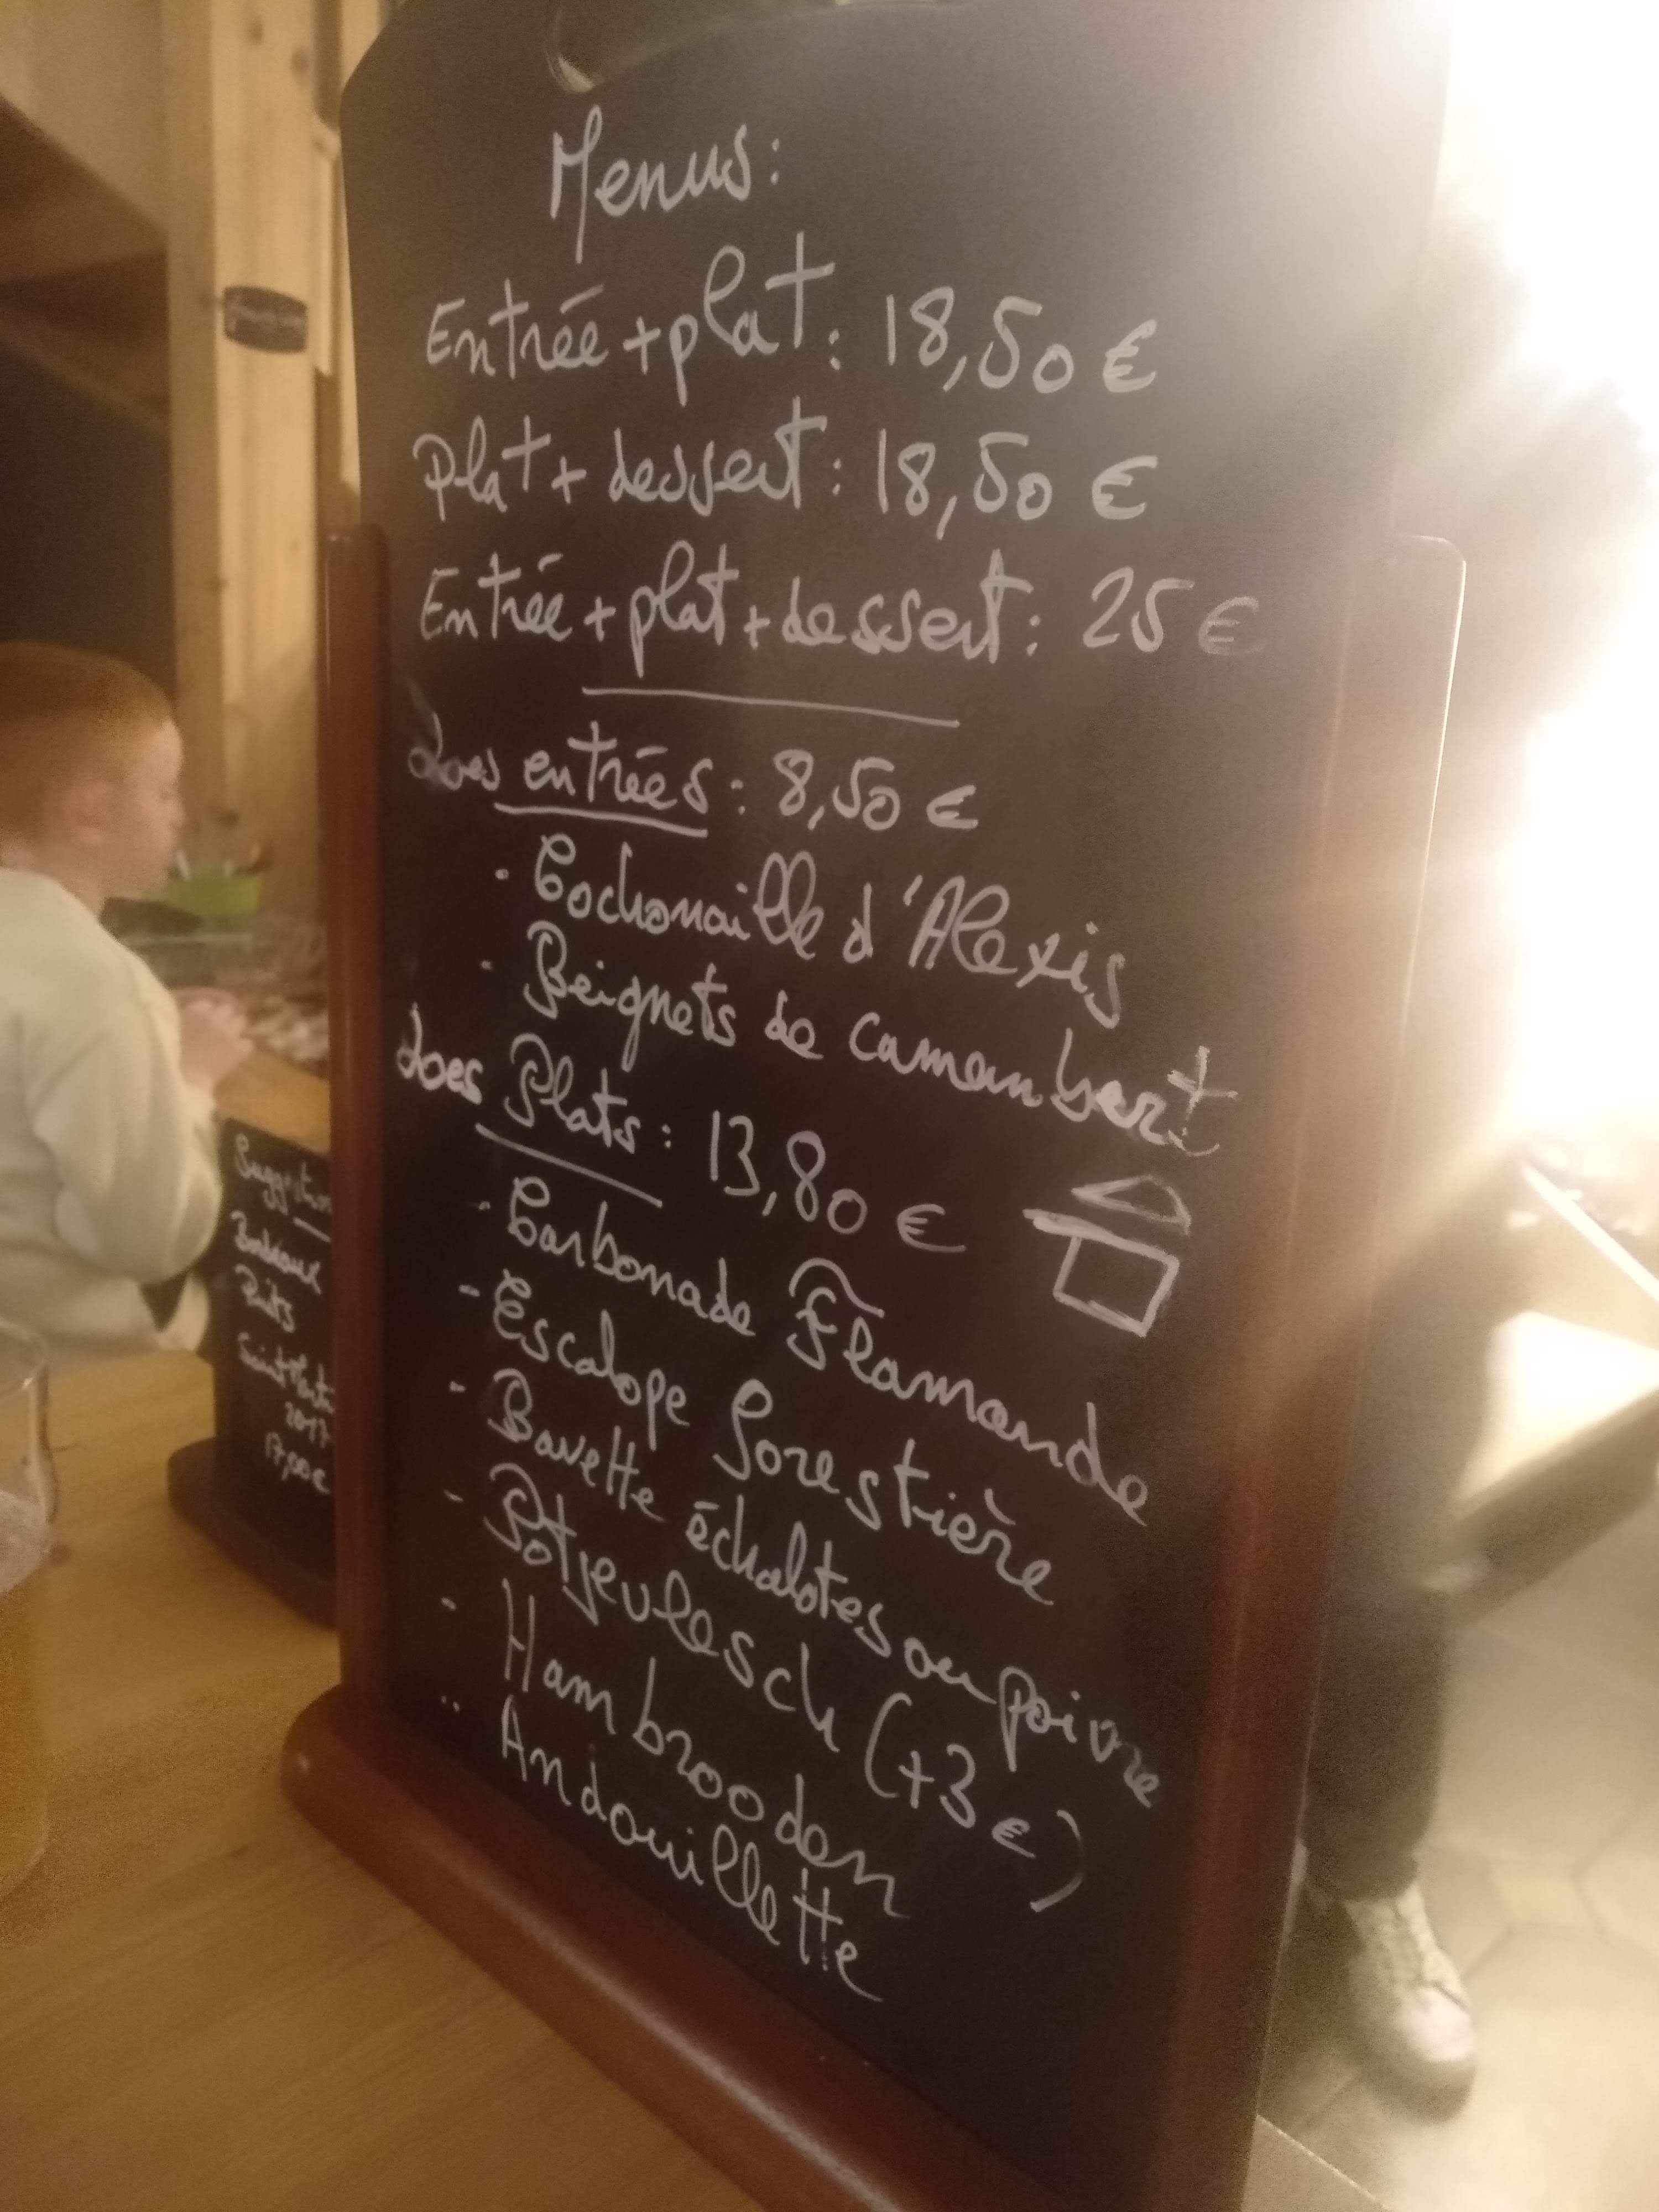 Menus:
Entrée + plat : 18,50 €
Plat + dessert : 18,50 €
Entrée + plat + dessert : 25 €
Les entrées : 8,50 €
· Cochonaille d'Alexis
· Beignets de camembert
Les Plats : 13,80 €
- Carbonade Flamande
- Escalope Forestière
- Bavette échalotes ou poivre
- Potjevlesch (+3 €)
- Hambrooden
- Andouillette
Suggestion
Bordeaux
Puits
Saint
2017
17,00 €